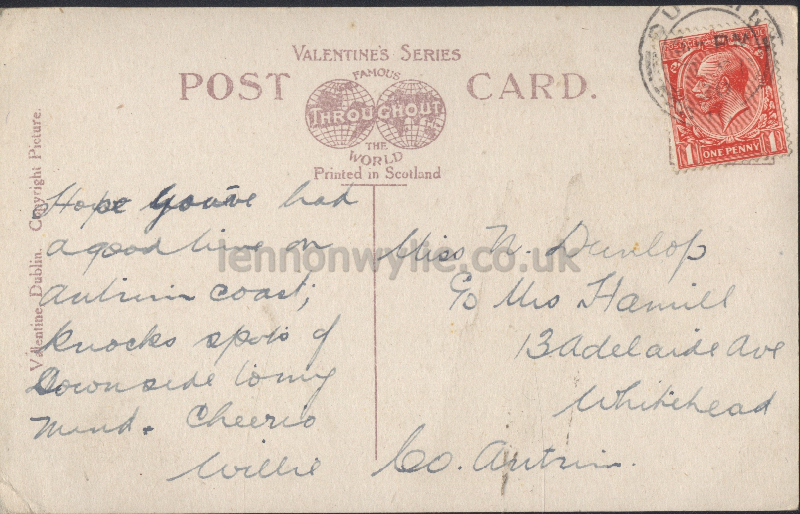 VALENTINE'S SERIES
POST CARD.
FAMOUS
THROUGHOUT
THE
WORLD
Printed in Scotland
Valentine, Dublin. Copyright Picture.
1 ONE PENNY 1
lennonwylie.co.uk
Hope you've had
a good time on
Antrim coast;
knocks spots of
Downside to my
mind. Cheerio
Willie
Miss N. Dunlop
c/o Mrs Hamill
13 Adelaide Ave
Whitehead
Co. Antrim.